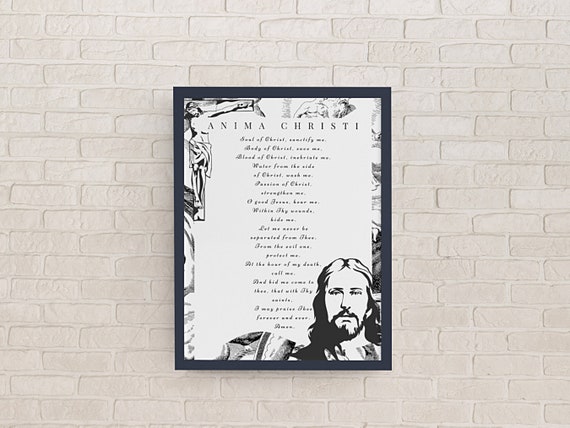 ANIMA CHRISTI
Soul of Christ, sanctify me.
Body of Christ, save me.
Blood of Christ, inebriate me.
Water from the side
of Christ, wash me.
Passion of Christ,
strengthen me.
O good Jesus, hear me.
Within Thy wounds,
hide me.
Let me never be
separated from Thee.
From the evil one,
protect me.
At the hour of my death,
call me.
And bid me come to
thee, that with Thy
saints,
I may praise Thee
forever and ever.
Amen.